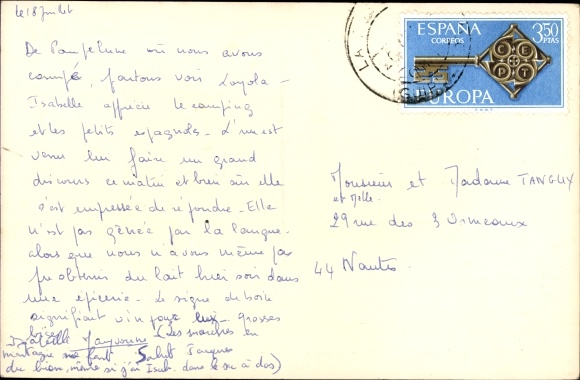 le 18 Juillet
De Pampelune où nous avons
campé, partons voir Loyola -
Isabelle apprécie le camping
et les petits espagnols - L'un est
venu lui faire un grand
discours ce matin et bien sûr elle
s'est empressée de répondre - Elle
n'est pas gênée par la langue -
alors que nous n'avons même pas
pu obtenir du lait hier soir dans
une épicerie - Le signe de boire
signifiait vin pour eux - grosses
bises
Isabelle (Les marches en
montagne me font Salut Jacques
du bien, même si j'ai Isab. dans le sac à dos)
ESPAÑA
CORREOS
3,50
PTAS
CEPT
EUROPA
LA
Monsieur et Madame TANGUY
et Melle
29 rue des 3 Ormeaux
44 Nantes